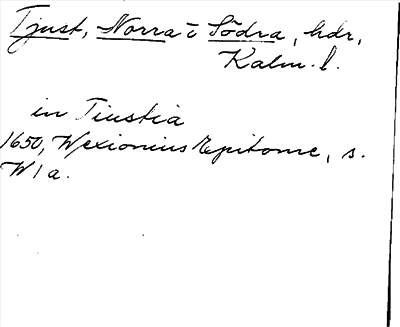 Tjust, Norra o Södra, hdr,
Kalm. l.
in Tiustia
1650, Wexionius Epitome, s.
W1a.